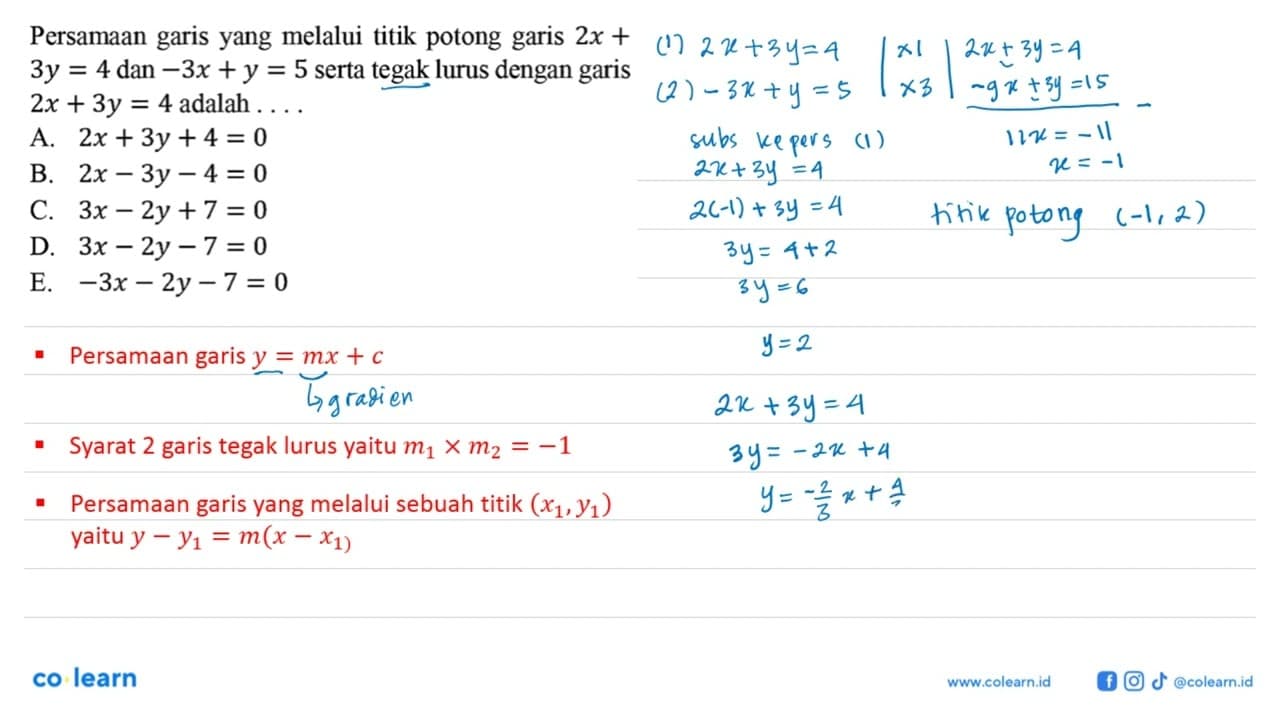 Persamaan garis yang melalui titik potong garis 2x +
3y = 4 dan −3x + y = 5 serta tegak lurus dengan garis
2x + 3y = 4 adalah . . . .
A. 2x + 3y + 4 = 0
B. 2x − 3y − 4 = 0
C. 3x − 2y + 7 = 0
D. 3x − 2y − 7 = 0
E. −3x − 2y − 7 = 0
▪ Persamaan garis y = mx + c
↳ gradien
▪ Syarat 2 garis tegak lurus yaitu m₁ × m₂ = −1
▪ Persamaan garis yang melalui sebuah titik (x₁, y₁)
yaitu y − y₁ = m(x − x₁)
(1) 2x + 3y = 4 | ×1 | 2x + 3y = 4
(2) −3x + y = 5 | ×3 | −9x + 3y = 15 −
11x = −11
x = −1
subs ke pers (1)
2x + 3y = 4
2(−1) + 3y = 4
3y = 4 + 2
3y = 6
y = 2
titik potong (−1, 2)
2x + 3y = 4
3y = −2x + 4
y = −2/3 x + 4/
co learn
www.colearn.id
@colearn.id